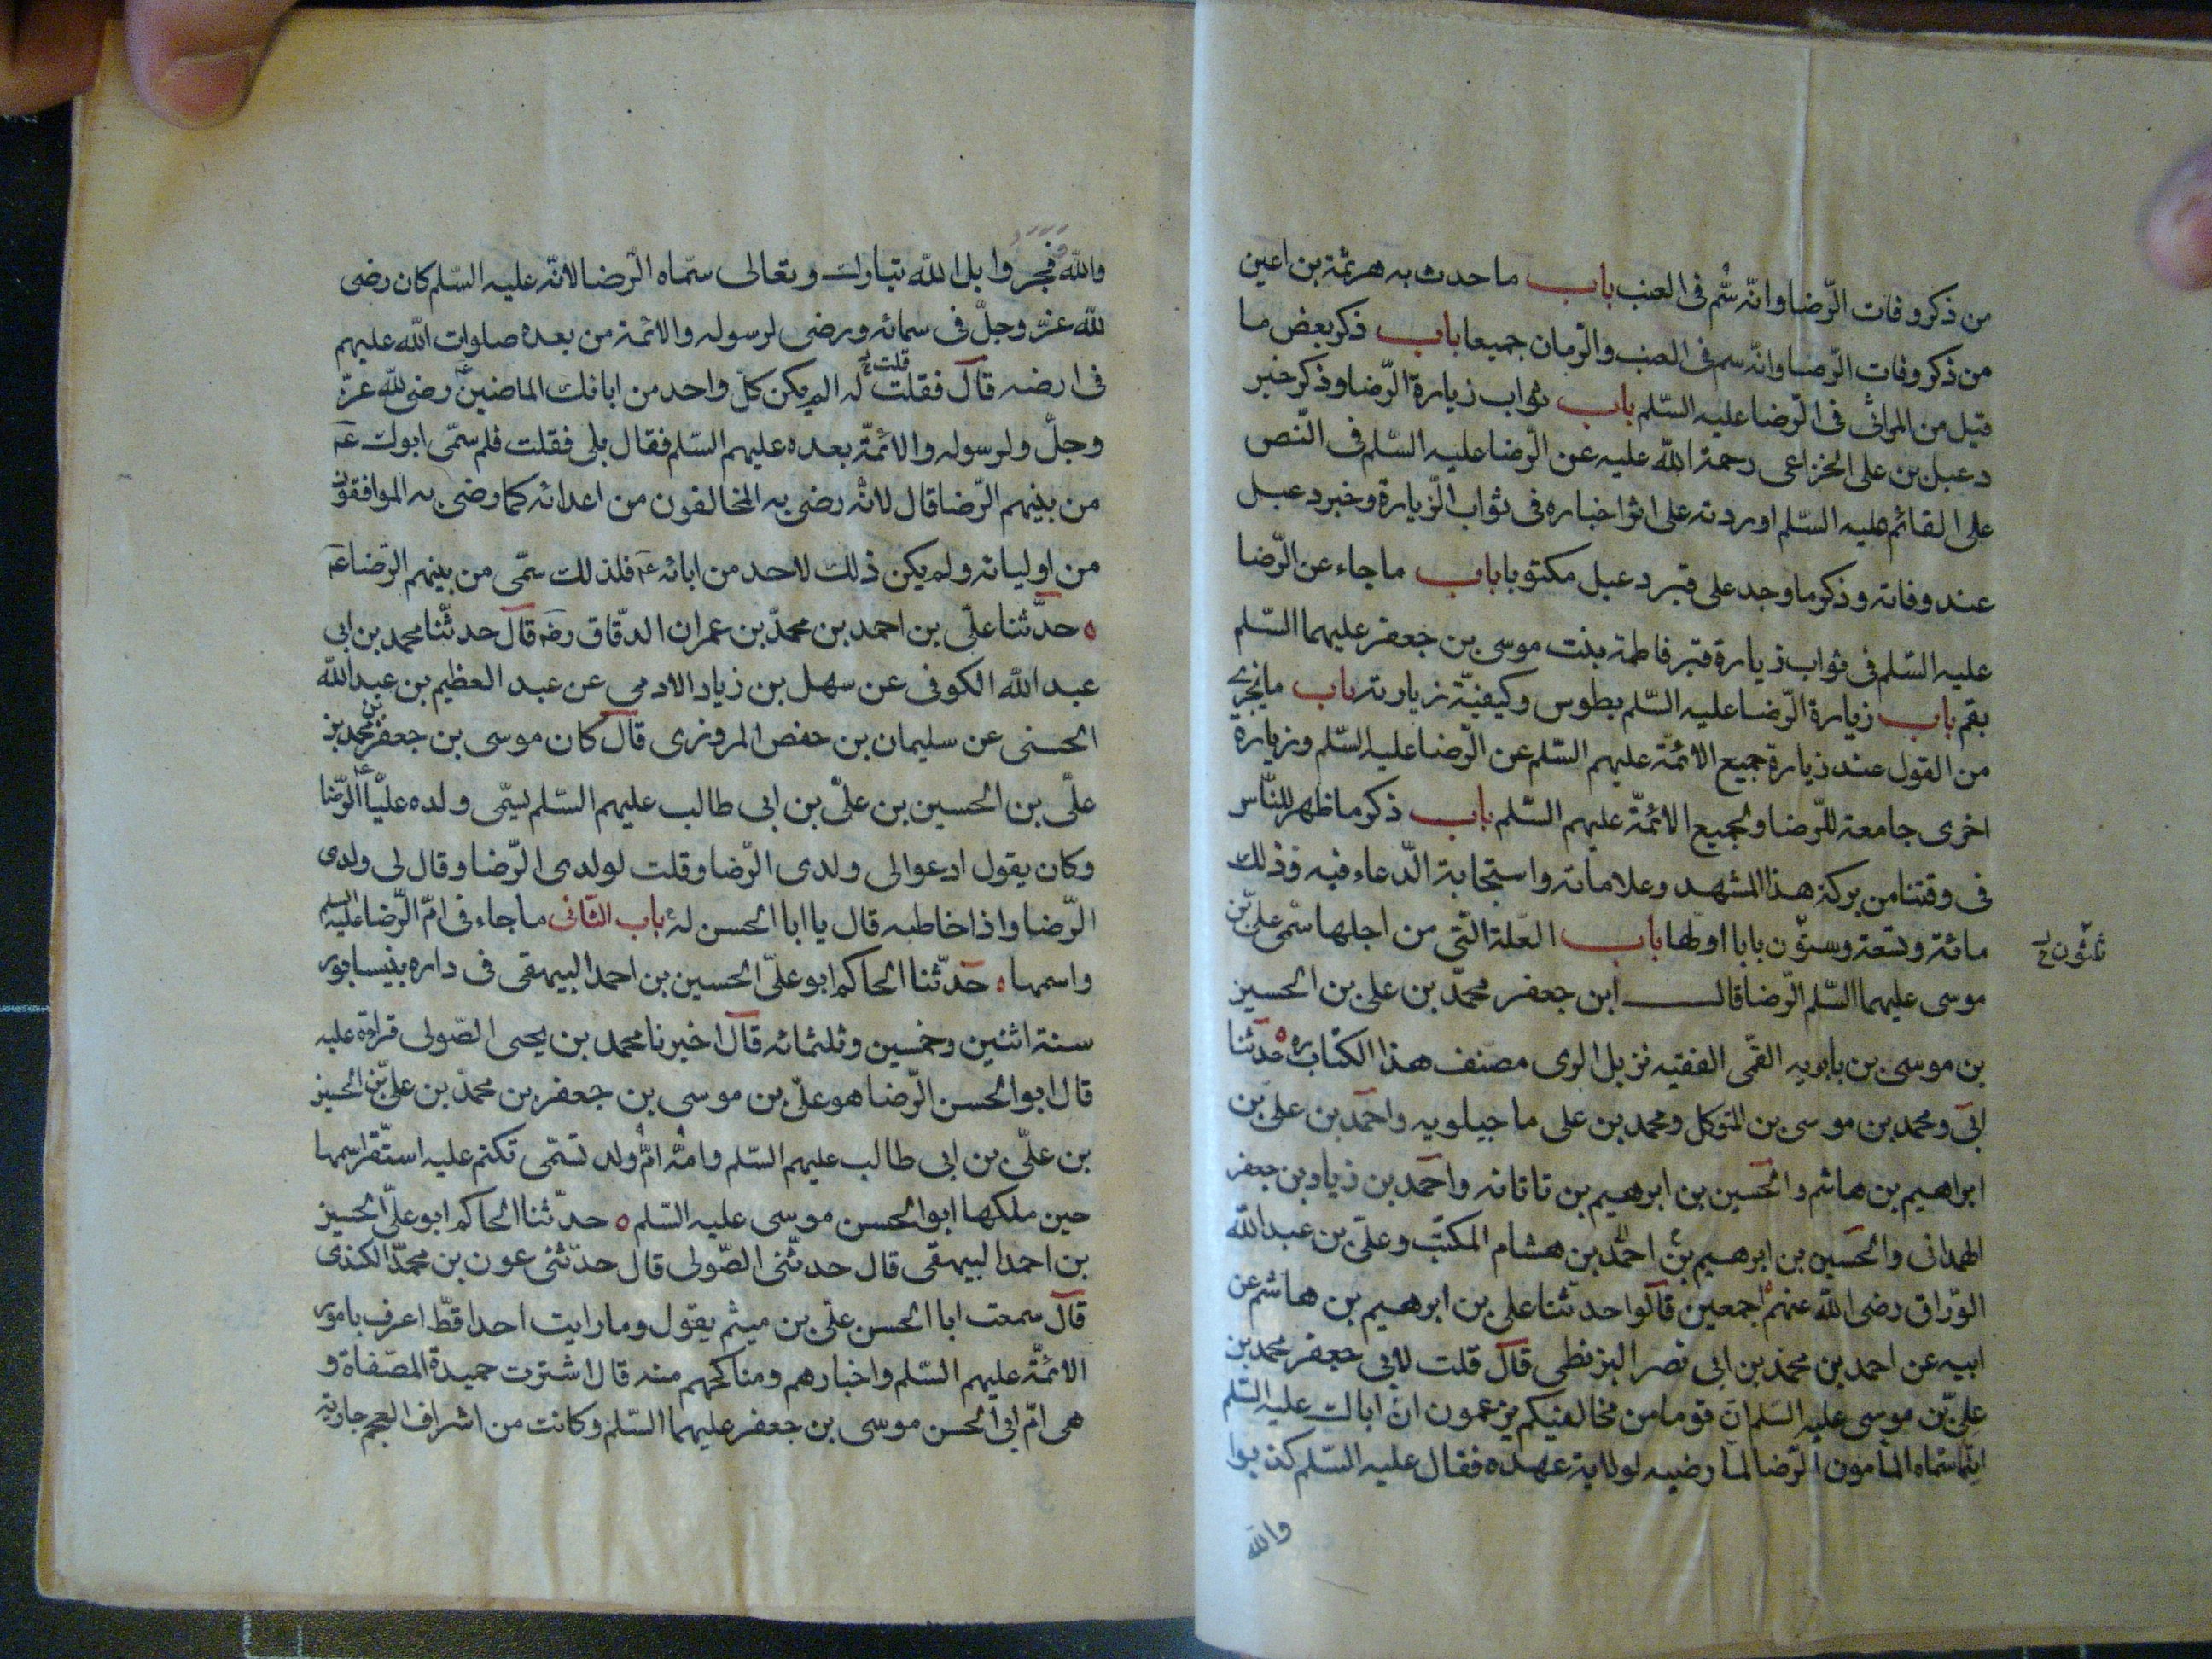 من ذكر وفات الرّضا وانّه سُّم فى العنب باب ما حدث به هرثمة بن اعين
من ذكر وفات الرّضا وانّه سم فى العنب والرّمان جميعا باب ذكر بعض ما
قيل من المراثى فى الرّضا عليه السّلم باب ثواب زيارة الرّضا وذكر خبر
دعبل بن على الخزاعى رحمة الله عليه عن الرّضا عليه السّلم فى النّص
على القائم عليه السّلم اوردته على اثر اخباره فى ثواب الزّيارة وخبر دعبل
عند وفاته وذكر ما وجد على قبر دعبل مكتوبا باب ما جاء عن الرّضا
عليه السّلم فى ثواب زيارة قبر فاطمة بنت موسى بن جعفر عليهما السّلم
بقم باب زيارة الرّضا عليه السّلم بطوس وكيفيّة زيارته باب ما يجزى
من القول عند زيارة جميع الائمّة عليهم السّلم عن الرّضا عليه السّلم وزيارة
اخرى جامعة للرّضا ولجميع الائمّة عليهم السّلم باب ذكر ما ظهر للنّاس
فى وقتنا من بركة هذا المشهد وعلاماته واستجابة الدّعاء فيه وذلك
مائة وتسعة وستّون بابا اوّلها باب العلّة الّتى من اجلها سمّى علىّ بن
ثلثون خ
موسى عليهما السّلم الرّضا قال ابن جعفر محمّد بن على بن الحسين
بن موسى بن بابويه القمّى الفقيه نزيل الرى مصنف هذا الكتاب ره حدّثنا
ابى ومحمد بن موسى بن المتوكل ومحمد بن على ماجيلويه واحمد بن علىّ بن
ابراهيم بن هاشم والحسين بن ابرهيم بن تاتانه واحمد بن زياد بن جعفر
الهمدانى والحسين بن ابرهيم بن احمد بن هشام المكتب وعلىّ بن عبد الله
الورّاق رضى الله عنهم اجمعين قالوا حدثنا على بن ابرهيم بن هاشم عن
ابيه عن احمد بن محمّد بن ابى نصر البزنطى قال قلت لابى جعفر محمد بن
علىّ بن موسى عليه السّلم انّ قوما من مخالفيكم يزعمون انّ اباك عليه السّلم
انّما سمّاه المأمون الرّضا لما رضيه لولاية عهده فقال عليه السّلم كذبوا
والله
والله فجروا بل الله تبارك وتعالى سمّاه الرّضا لانّه عليه السّلم كان رضى
لله عزّ وجلّ فى سمائه ورضى لرسوله والائمّة من بعده صلوات الله عليهم
فى ارضه قال فقلت له الم يكن كلّ واحد من ابائك الماضين رضى لله عزّ
قلت خ
وجلّ ولرسوله والائمّة بعده عليهم السّلم فقال بلى فقلت فلم سمّى ابوك ع
من بينهم الرّضا قال لانّه رضى به المخالفون من اعدائه كما رضى به الموافقون
من اوليائه ولم يكن ذلك لاحد من ابائه ع فلذلك سمّى من بينهم الرّضا ع
حدّثنا علىّ بن احمد بن محمّد بن عمران الدقّاق رضه قال حدثّنا محمد بن ابى
عبد الله الكوفى عن سهل بن زياد الادمى عن عبد العظيم بن عبد الله
الحسنى عن سليمان بن حفص المروزى قال كان موسى بن جعفر بن محمد بن
علىّ بن الحسين بن علىّ بن ابى طالب عليهم السّلم يسمّى ولده عليّا ع الرّضا
وكان يقول ادعوا لى ولدى الرّضا وقلت لولدى الرّضا وقال لى ولدى
الرّضا واذا خاطبه قال يا ابا الحسن له باب الثّانى ما جاء فى امّ الرّضا عليه السلم
واسمها حدّثنا الحاكم ابو علىّ الحسين بن احمد البيهقى فى داره بنيسابور
سنة اثنين وخمسين وثلثمائه قال اخبرنا محمد بن يحيى الصّولى قراءة عليه
قال ابو الحسن الرّضا هو علىّ بن موسى بن جعفر بن محمّد بن علىّ بن الحسين
بن علىّ بن ابى طالب عليهم السّلم وامّه امّ ولد تسمّى تكتم عليه استقرّ اسمها
حين ملكها ابو الحسن موسى عليه السّلم حدّثنا الحاكم ابو علىّ الحسين
بن احمد البيهقى قال حدثنى الصّولى قال حدّثنى عون بن محمّد الكندى
قال سمعت ابا الحسن علىّ بن ميثم يقول وما رايت احدا قطّ اعرف بامور
الائمّة عليهم السّلم واخبارهم ومناكحهم منه قال اشترت حميدة المصفاة و
هى امّ ابى الحسن موسى بن جعفر عليهما السّلم وكانت من اشراف العجم جارية